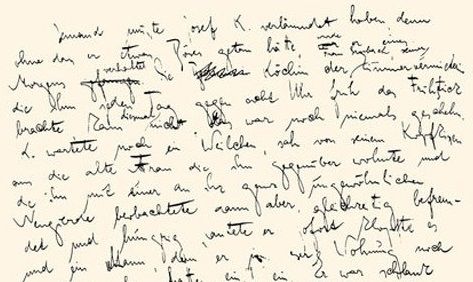 Jemand mußte Josef K. verläumdet haben denn
ohne daß er etwas Böses getan hätte wurde er eines
Morgens verhaftet. Die Köchin der Zimmervermie
Frau Grubach seiner
die ihm jeden Tag gegen acht Uhr früh das Frühstück
brachte kam diesmal nicht. Das war noch niemals geschehn.
K. wartete noch ein Weilchen, sah von seinem Kopfkissen
aus die alte Frau die ihm gegenüber wohnte und
die ihn mit einer an ihr ganz ungewöhnlichen
Neugierde beobachtete dann aber, gleichzeitig befrem-
det und hungrig, läutete er. Sofort klopfte es
und ein Mann, den er in dieser Wohnung noch
hatte ein. Er war schlank